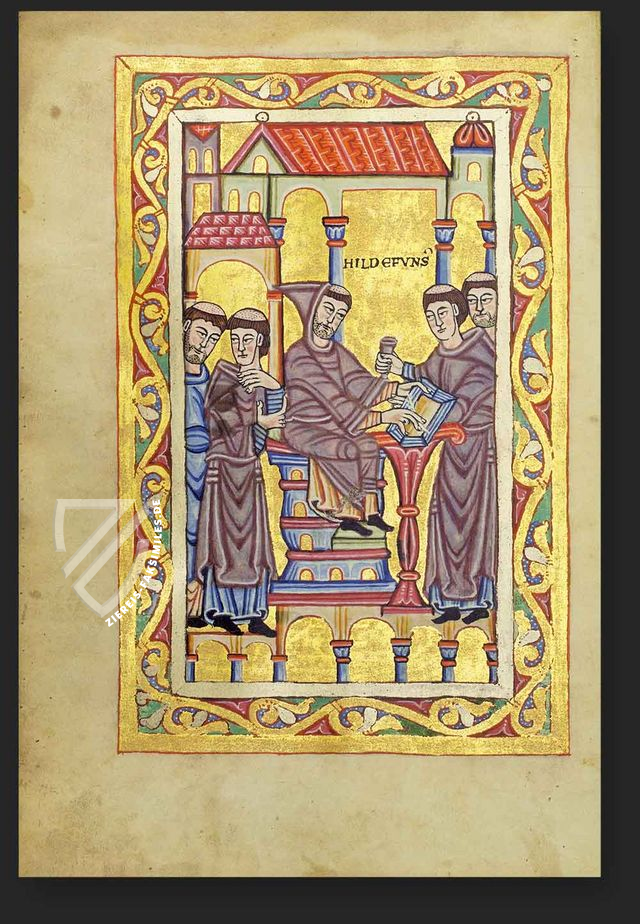 HILDEFVNS
ZIEGLER FACSIMILES.DE